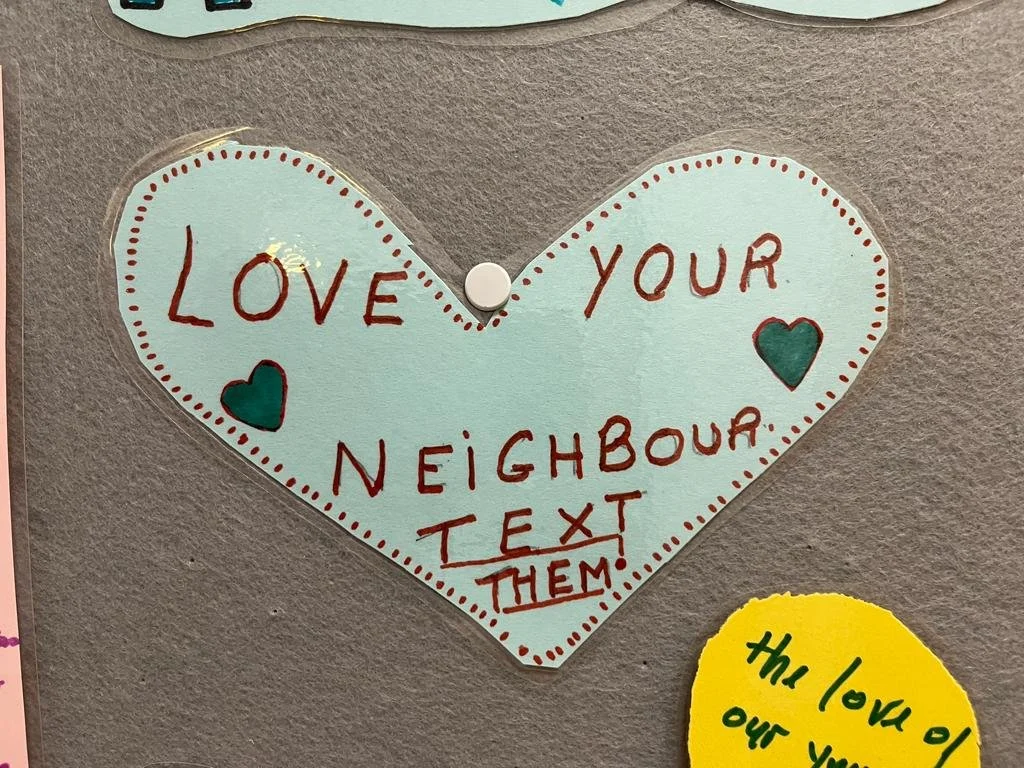 LOVE YOUR
NEiGHBOUR.
TEXT
THEM!
the love of
our